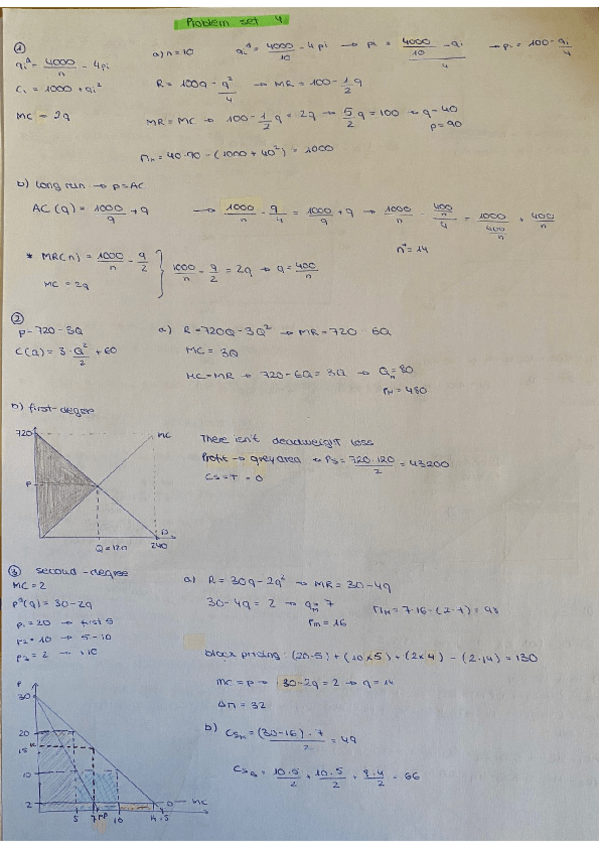 Problem set 4
①
qᵢᵈ = 4000/n - 4pᵢ
a) n = 10 qᵢᵈ = 4000/10 - 4pᵢ → pᵢ = (4000/10 - qᵢ)/4 → pᵢ = 100 - qᵢ/4
Cᵢ = 1000 + qᵢ²
R = 100q - q²/4 → MR = 100 - 1/2 q
MC = 2q
MR = MC → 100 - 1/2 q = 2q → 5/2 q = 100 → q = 40
p = 90
Πₙ = 40·90 - (1000 + 40²) = 1000
b) long run → p = AC
AC(q) = 1000/q + q → 1000/n - q/4 = 1000/q + q → 1000/n - (400/n)/4 = 1000/(400/n) + 400/n
n* = 14
* MR(n) = 1000/n - q/2
MC = 2q
} 1000/n - q/2 = 2q → q = 400/n
②
p = 720 - 3Q
a) R = 720Q - 3Q² → MR = 720 - 6Q
C(Q) = 3·Q²/2 + 60
MC = 3Q
MC = MR → 720 - 6Q = 3Q → Qₘ = 80
pₘ = 480
b) first-degree
720
MC
P
D
Q = 120
240
There isn't deadweight loss
Profit → grey area → PS = 720·120/2 = 43200
CS = T = 0
③ second-degree
MC = 2
pᵈ(q) = 30 - 2q
p₁ = 20 → first 5
p₂ = 10 → 5 - 10
p₃ = 2 → >10
a) R = 30q - 2q² → MR = 30 - 4q
30 - 4q = 2 → qₘ = 7
pₘ = 16
Πₘ = 7·16 - (2·7) = 98
block pricing: (20·5) + (10×5) + (2×4) - (2·14) = 130
MC = p → 30 - 2q = 2 → q = 14
ΔΠ = 32
b) CSₘ = (30-16)·7/2 = 49
CS = 10·5/2 + 10·5/2 + 8·4/2 = 66
P
30
20
10
2
5
7
10
14.5
D
MC